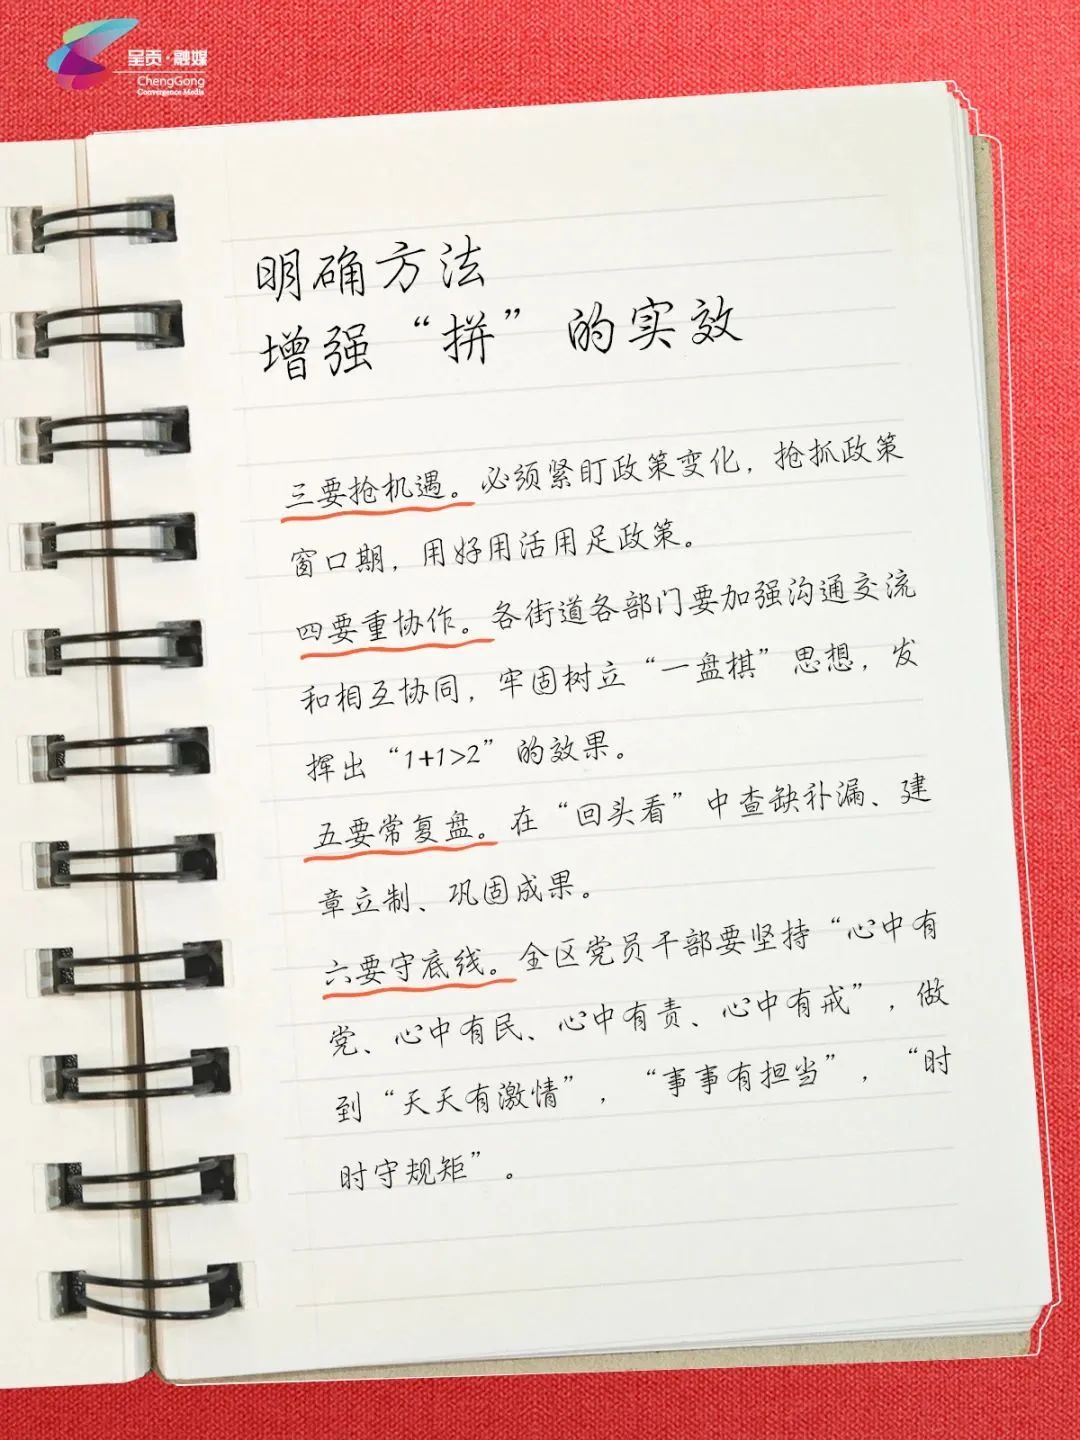 呈贡·融媒
ChengGong
Convergence Media
明确方法
增强“拼”的实效
三要抢机遇。必须紧盯政策变化，抢抓政策
窗口期，用好用活用足政策。
四要重协作。各街道各部门要加强沟通交流
和相互协同，牢固树立“一盘棋”思想，发
挥出“1+1>2”的效果。
五要常复盘。在“回头看”中查缺补漏、建
章立制、巩固成果。
六要守底线。全区党员干部要坚持“心中有
党、心中有民、心中有责、心中有戒”，做
到“天天有激情”，“事事有担当”，“时
时守规矩”。